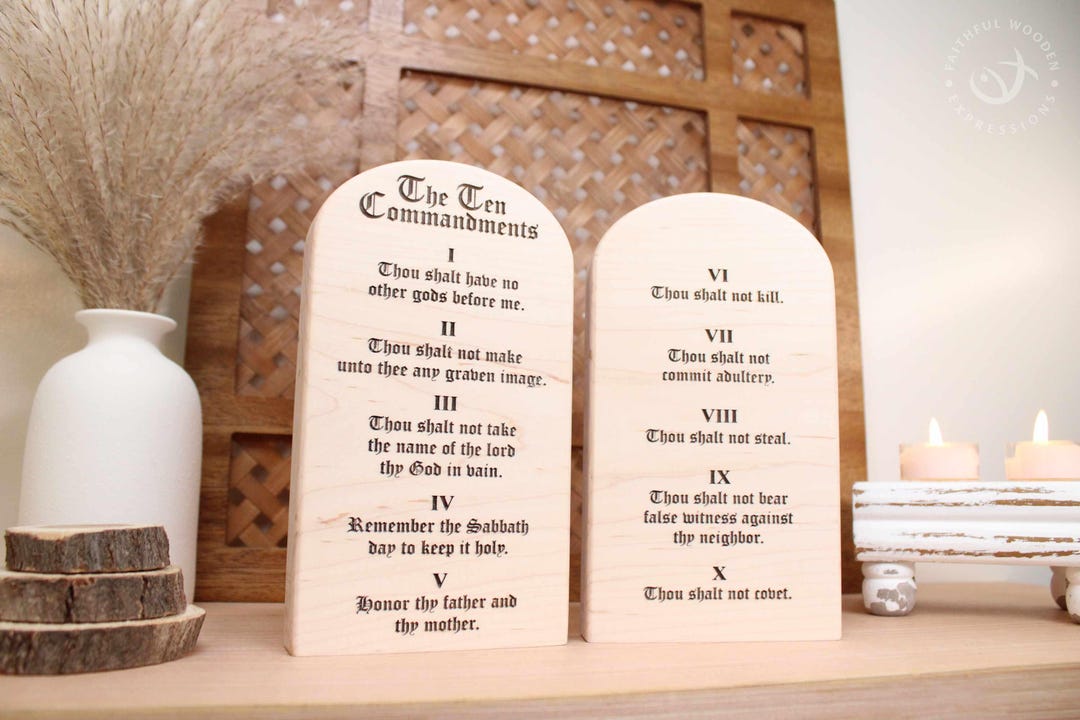 The Ten
Commandments
I
Thou shalt have no
other gods before me.
II
Thou shalt not make
unto thee any graven image.
III
Thou shalt not take
the name of the lord
thy God in vain.
IV
Remember the Sabbath
day to keep it holy.
V
Honor thy father and
thy mother.
VI
Thou shalt not kill.
VII
Thou shalt not
commit adultery.
VIII
Thou shalt not steal.
IX
Thou shalt not bear
false witness against
thy neighbor.
X
Thou shalt not covet.
FAITHFUL WOODEN
EXPRESSIONS